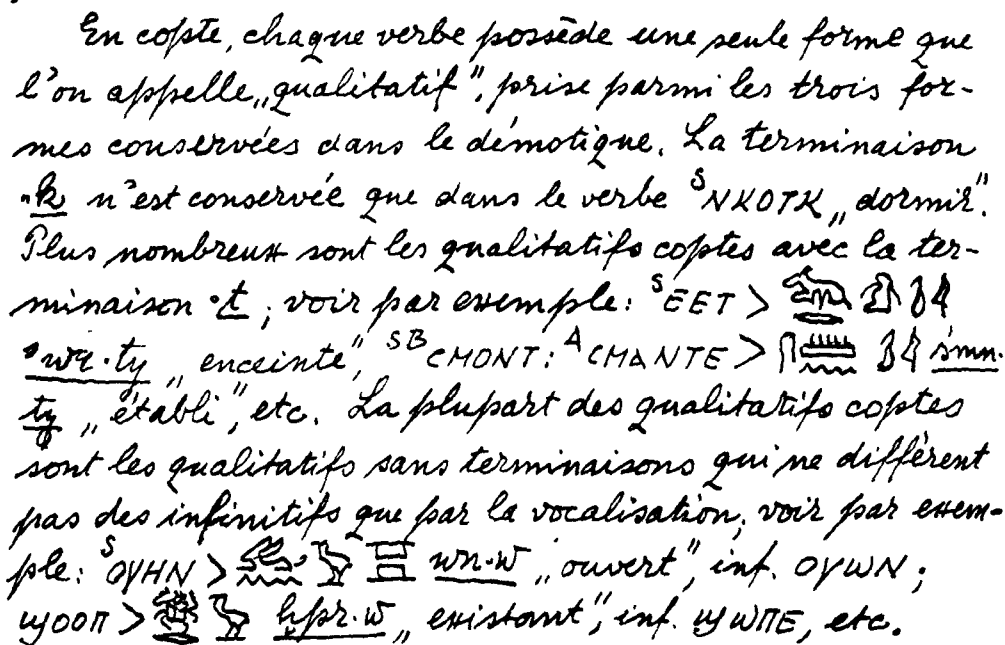 En copte, chaque verbe possède une seule forme que
l'on appelle „qualitatif", prise parmi les trois for-
mes conservées dans le démotique. La terminaison
·k n'est conservée que dans le verbe ˢNKOTK „dormir".
Plus nombreux sont les qualitatifs coptes avec la ter-
minaison ·t; voir par exemple: ˢEET >
·ty „enceinte", ˢᴮCMONT: ᴬCMANTE > śmn·
ty „établi", etc. La plupart des qualitatifs coptes
sont les qualitatifs sans terminaisons qui ne diffèrent
pas des infinitifs que par la vocalisation, voir par exem-
ple: ˢOYHN > wn·w „ouvert", inf. OYωN;
ϣOOΠ > ḫpr·w „existant", inf. ϣωΠE, etc.